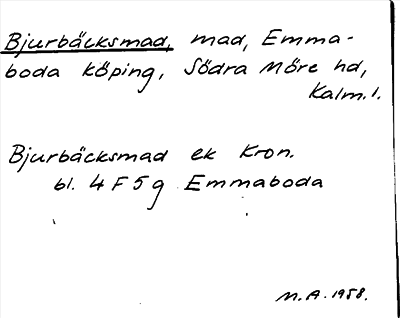 Bjurbäcksmad, mad, Emma-
boda köping, Södra Möre hd,
Kalm. l.
Bjurbäcksmad ek Kron.
bl. 4 F 5 g Emmaboda
M.A. 1958.